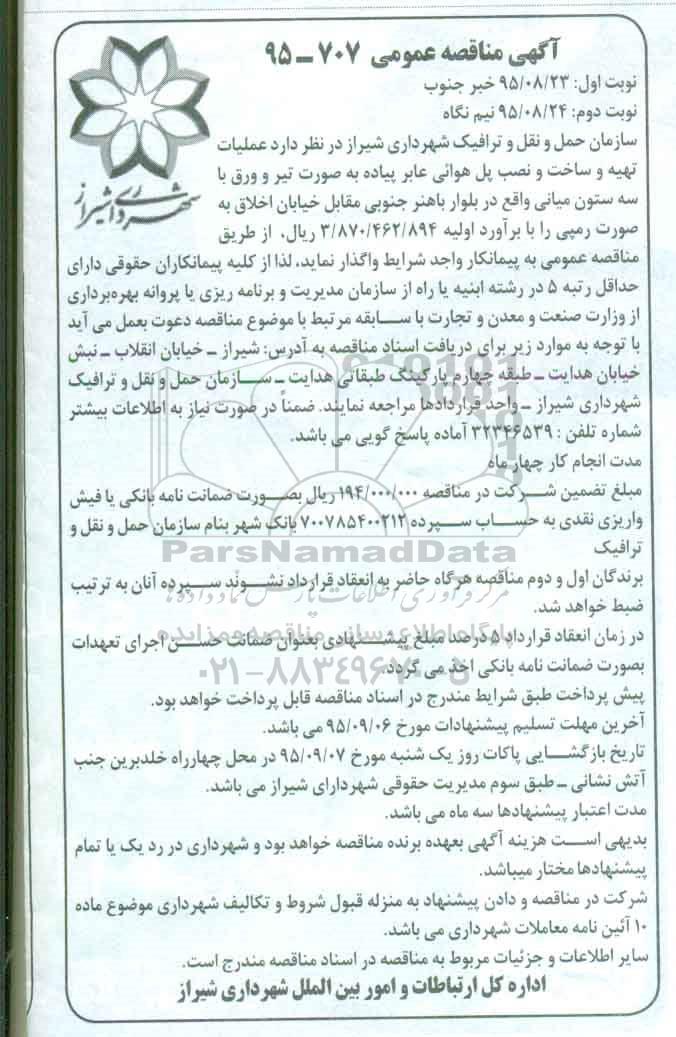 آگهی مناقصه عمومی ۷۰۷ ــ ۹۵
نوبت اول: ۹۵/۰۸/۲۳ خبر جنوب
نوبت دوم: ۹۵/۰۸/۲۴ نیم نگاه
شهرداری شیراز
سازمان حمل و نقل و ترافیک شهرداری شیراز در نظر دارد عملیات
تهیه و ساخت و نصب پل هوائی عابر پیاده به صورت تیر و ورق با
سه ستون میانی واقع در بلوار باهنر جنوبی مقابل خیابان اخلاق به
صورت رمپی را با برآورد اولیه ۳/۸۷۰/۴۶۲/۸۹۴ ریال، از طریق
مناقصه عمومی به پیمانکار واجد شرایط واگذار نماید، لذا از کلیه پیمانکاران حقوقی دارای
حداقل رتبه ۵ در رشته ابنیه یا راه از سازمان مدیریت و برنامه ریزی یا پروانه بهره‌برداری
از وزارت صنعت و معدن و تجارت با سابقه مرتبط با موضوع مناقصه دعوت بعمل می آید
با توجه به موارد زیر برای دریافت اسناد مناقصه به آدرس: شیراز ــ خیابان انقلاب ــ نبش
خیابان هدایت ــ طبقه چهارم پارکینگ طبقاتی هدایت ــ سازمان حمل و نقل و ترافیک
شهرداری شیراز ــ واحد قراردادها مراجعه نمایند. ضمناً در صورت نیاز به اطلاعات بیشتر
شماره تلفن : ۳۲۳۴۶۵۳۹ آماده پاسخ گویی می باشد.
مدت انجام کار چهار ماه
مبلغ تضمین شرکت در مناقصه ۱۹۴/۰۰۰/۰۰۰ ریال بصورت ضمانت نامه بانکی یا فیش
واریزی نقدی به حساب سپرده ۷۰۰۷۸۵۴۰۰۲۱۲ بانک شهر بنام سازمان حمل و نقل و
ترافیک
ParsNamadData
برندگان اول و دوم مناقصه هرگاه حاضر به انعقاد قرارداد نشوند سپرده آنان به ترتیب
ضبط خواهد شد.
مرکز فرآوری اطلاعات پارس نماد داده ها
در زمان انعقاد قرارداد ۵ درصد مبلغ پیشنهادی بعنوان ضمانت حسن اجرای تعهدات
پایگاه اطلاع رسانی مناقصه و مزایده
بصورت ضمانت نامه بانکی اخذ می گردد.
۰۲۱-۸۸۳۴۹۶۷۰-۵
پیش پرداخت طبق شرایط مندرج در اسناد مناقصه قابل پرداخت خواهد بود.
آخرین مهلت تسلیم پیشنهادات مورخ ۹۵/۰۹/۰۶ می باشد.
تاریخ بازگشایی پاکات روز یک شنبه مورخ ۹۵/۰۹/۰۷ در محل چهارراه خلدبرین جنب
آتش نشانی ــ طبق سوم مدیریت حقوقی شهردارای شیراز می باشد.
مدت اعتبار پیشنهادها سه ماه می باشد.
بدیهی است هزینه آگهی بعهده برنده مناقصه خواهد بود و شهرداری در رد یک یا تمام
پیشنهادها مختار میباشد.
شرکت در مناقصه و دادن پیشنهاد به منزله قبول شروط و تکالیف شهرداری موضوع ماده
۱۰ آئین نامه معاملات شهرداری می باشد.
سایر اطلاعات و جزئیات مربوط به مناقصه در اسناد مناقصه مندرج است.
اداره کل ارتباطات و امور بین الملل شهرداری شیراز